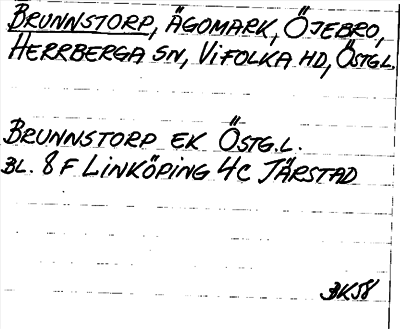 BRUNNSTORP, ÄGOMARK, ÖJEBRO,
HERRBERGA SN, VIFOLKA HD, ÖSTG.L.
BRUNNSTORP EK ÖSTG.L.
BL. 8 F LINKÖPING 4C JÄRSTAD
BK58